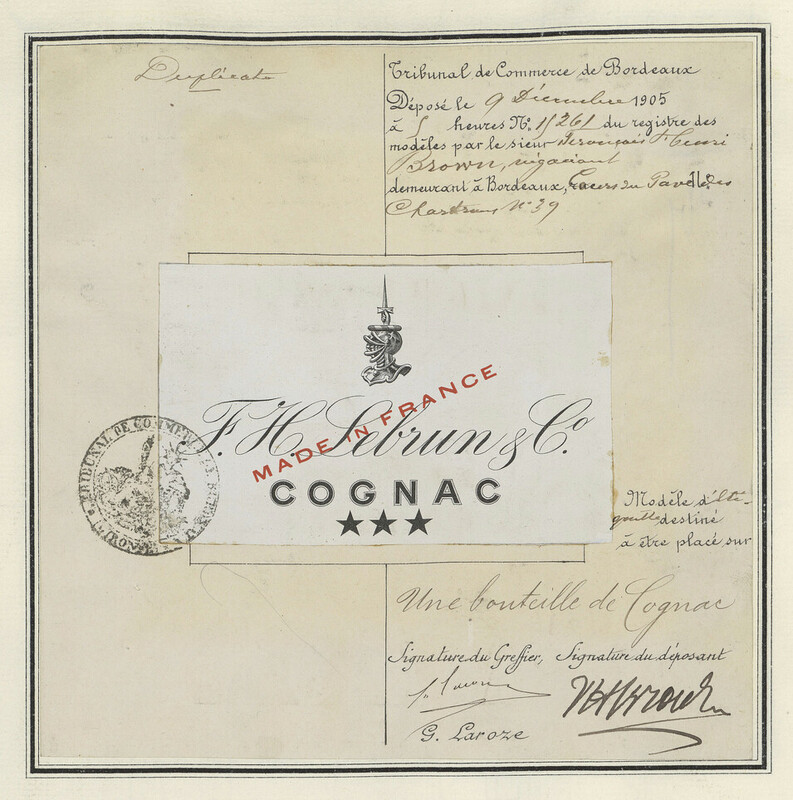 Duplicata
Tribunal de Commerce de Bordeaux
Déposé le 9 Décembre 1905
à 5 heures No. 15261 du registre des
modèles par le sieur François Henri
Brown, négociant
demeurant à Bordeaux, Cours du Pavé des
Chartrons No 39
F. H. Lebrun & Co.
MADE IN FRANCE
COGNAC
TRIBUNAL DE COMMERCE DE BORDEAUX
Modèle d'Eti-
quette destiné
à être placé sur
Une bouteille de Cognac
Signature du Greffier, Signature du déposant
G. Laroze